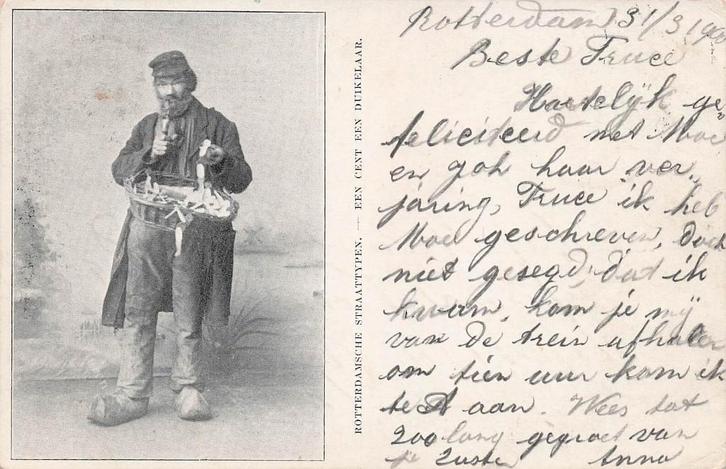 ROTTERDAMSCHE STRAATTYPEN. — EEN CENT EEN DUIKELAAR.
Rotterdam 31/3 190
Beste Truce
Hartelijk ge„
feliciteerd met Moe
en goh haar ver„
jaring, Truce ik heb
Moe geschreven, doch
niet gesegd, dat ik
kwam, kom je mij
van de trein afhalen
om tien uur kom ik
te A aan. Wees tot
zoo lang gegroet van
je Zuster Anna